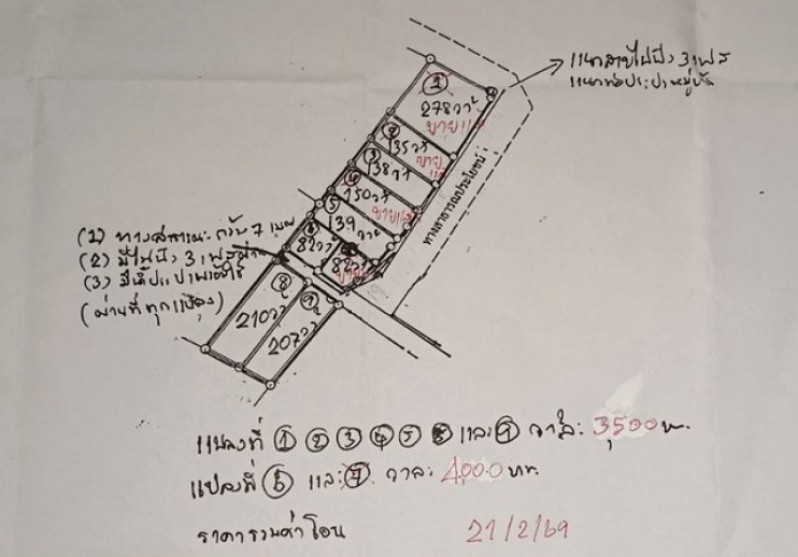 แนวสายไฟฟ้า 3 เฟส
แนวท่อประปาหมู่บ้าน
①
278 วา
ขายแล้ว
②
135 วา
ขายแล้ว
③
138 วา
④
150 วา
ขายแล้ว
⑤
139 วา
⑥
82 วา
82 วา
ขาย
ทางสาธารณประโยชน์
(1) ทางสาธารณะกว้าง 7 เมตร
(2) มีไฟฟ้า 3 เฟสผ่าน
(3) มีน้ำประปา
(ผ่านที่ทุกแปลง)
⑧
210 วา
⑨
207 วา
แปลงที่ ① ② ③ ④ ⑤ ⑧ และ ⑨ วาละ 3,500 บ.
แปลงที่ ⑥ และ ⑦ วาละ 4,000 บาท.
ราคารวมค่าโอน 21/2/69